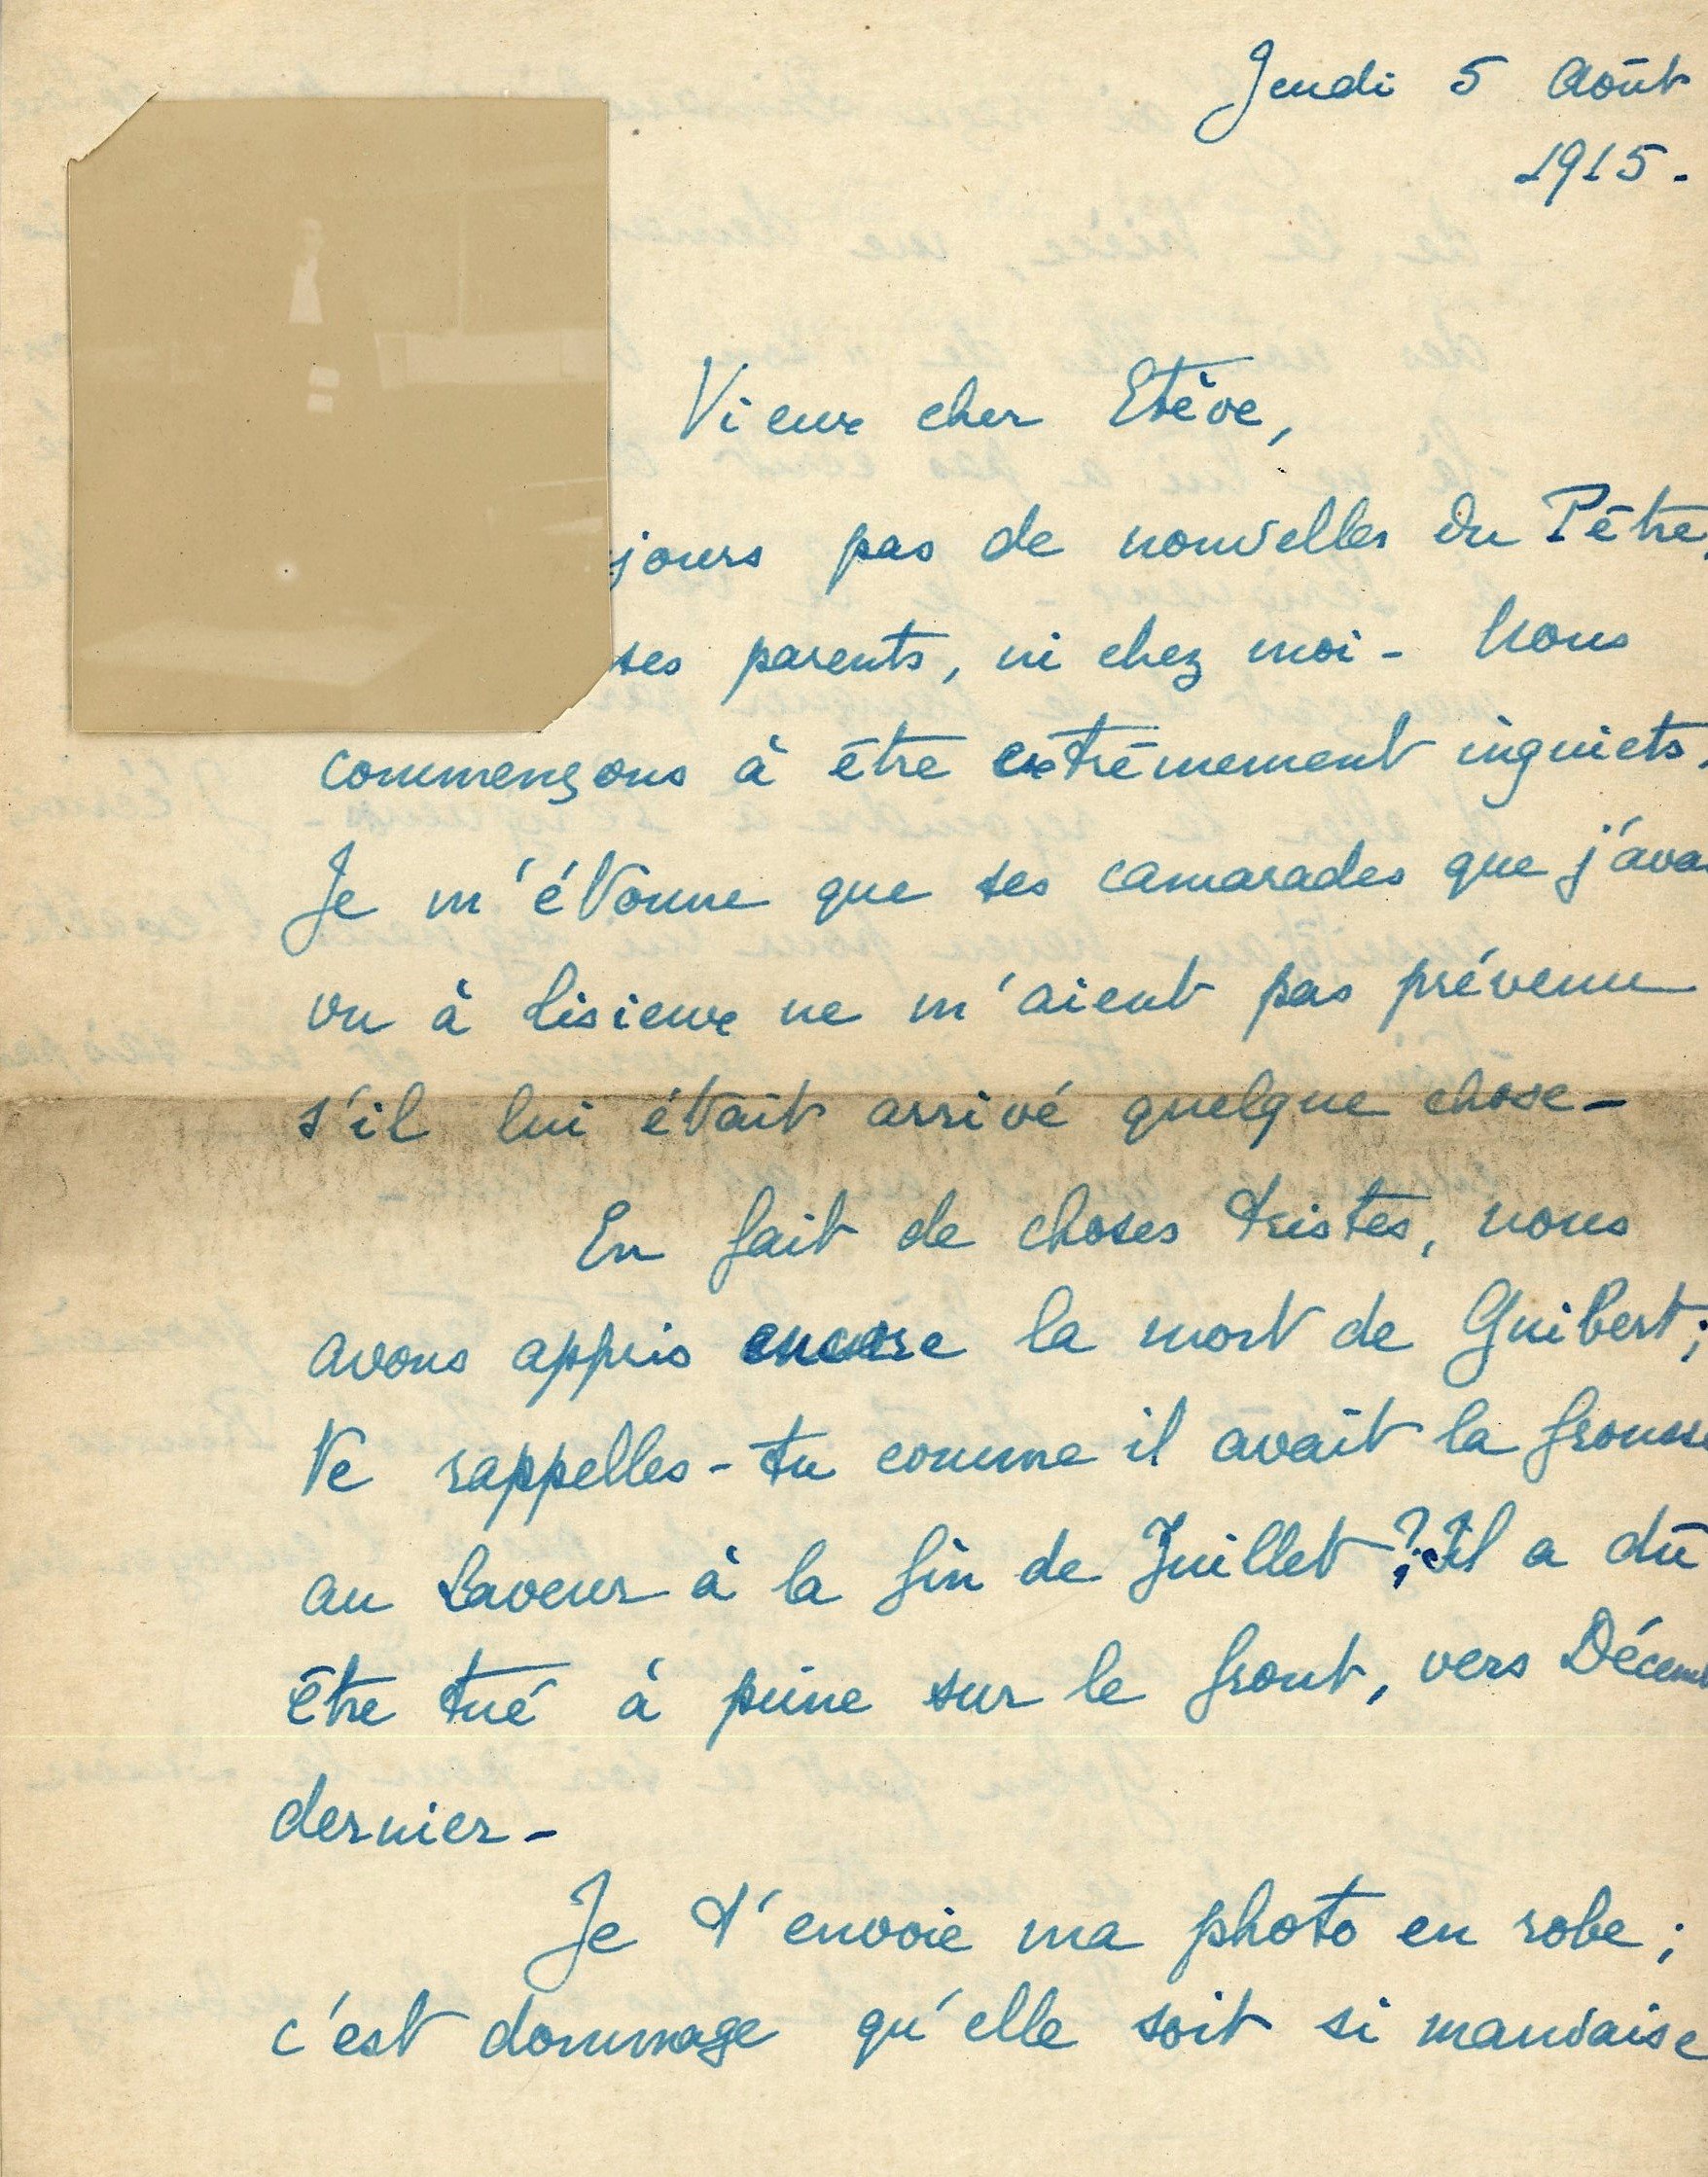 Jeudi 5 Août
1915.
Vieux cher Etève,
jours pas de nouvelles du Pêtre,
ses parents, ni chez moi - Nous
commençons à être extrêmement inquiets.
Je m'étonne que ses camarades que j'ava
vu à Lisieux ne m'aient pas prévenu
s'il lui était arrivé quelque chose -
En fait de choses tristes, nous
avons appris encore la mort de Guibert ;
te rappelles-tu comme il avait la frousse
au Laveur à la fin de Juillet ? Il a dû
être tué à peine sur le front, vers Décemb
dernier -
Je t'envoie ma photo en robe ;
c'est dommage qu'elle soit si mauvaise